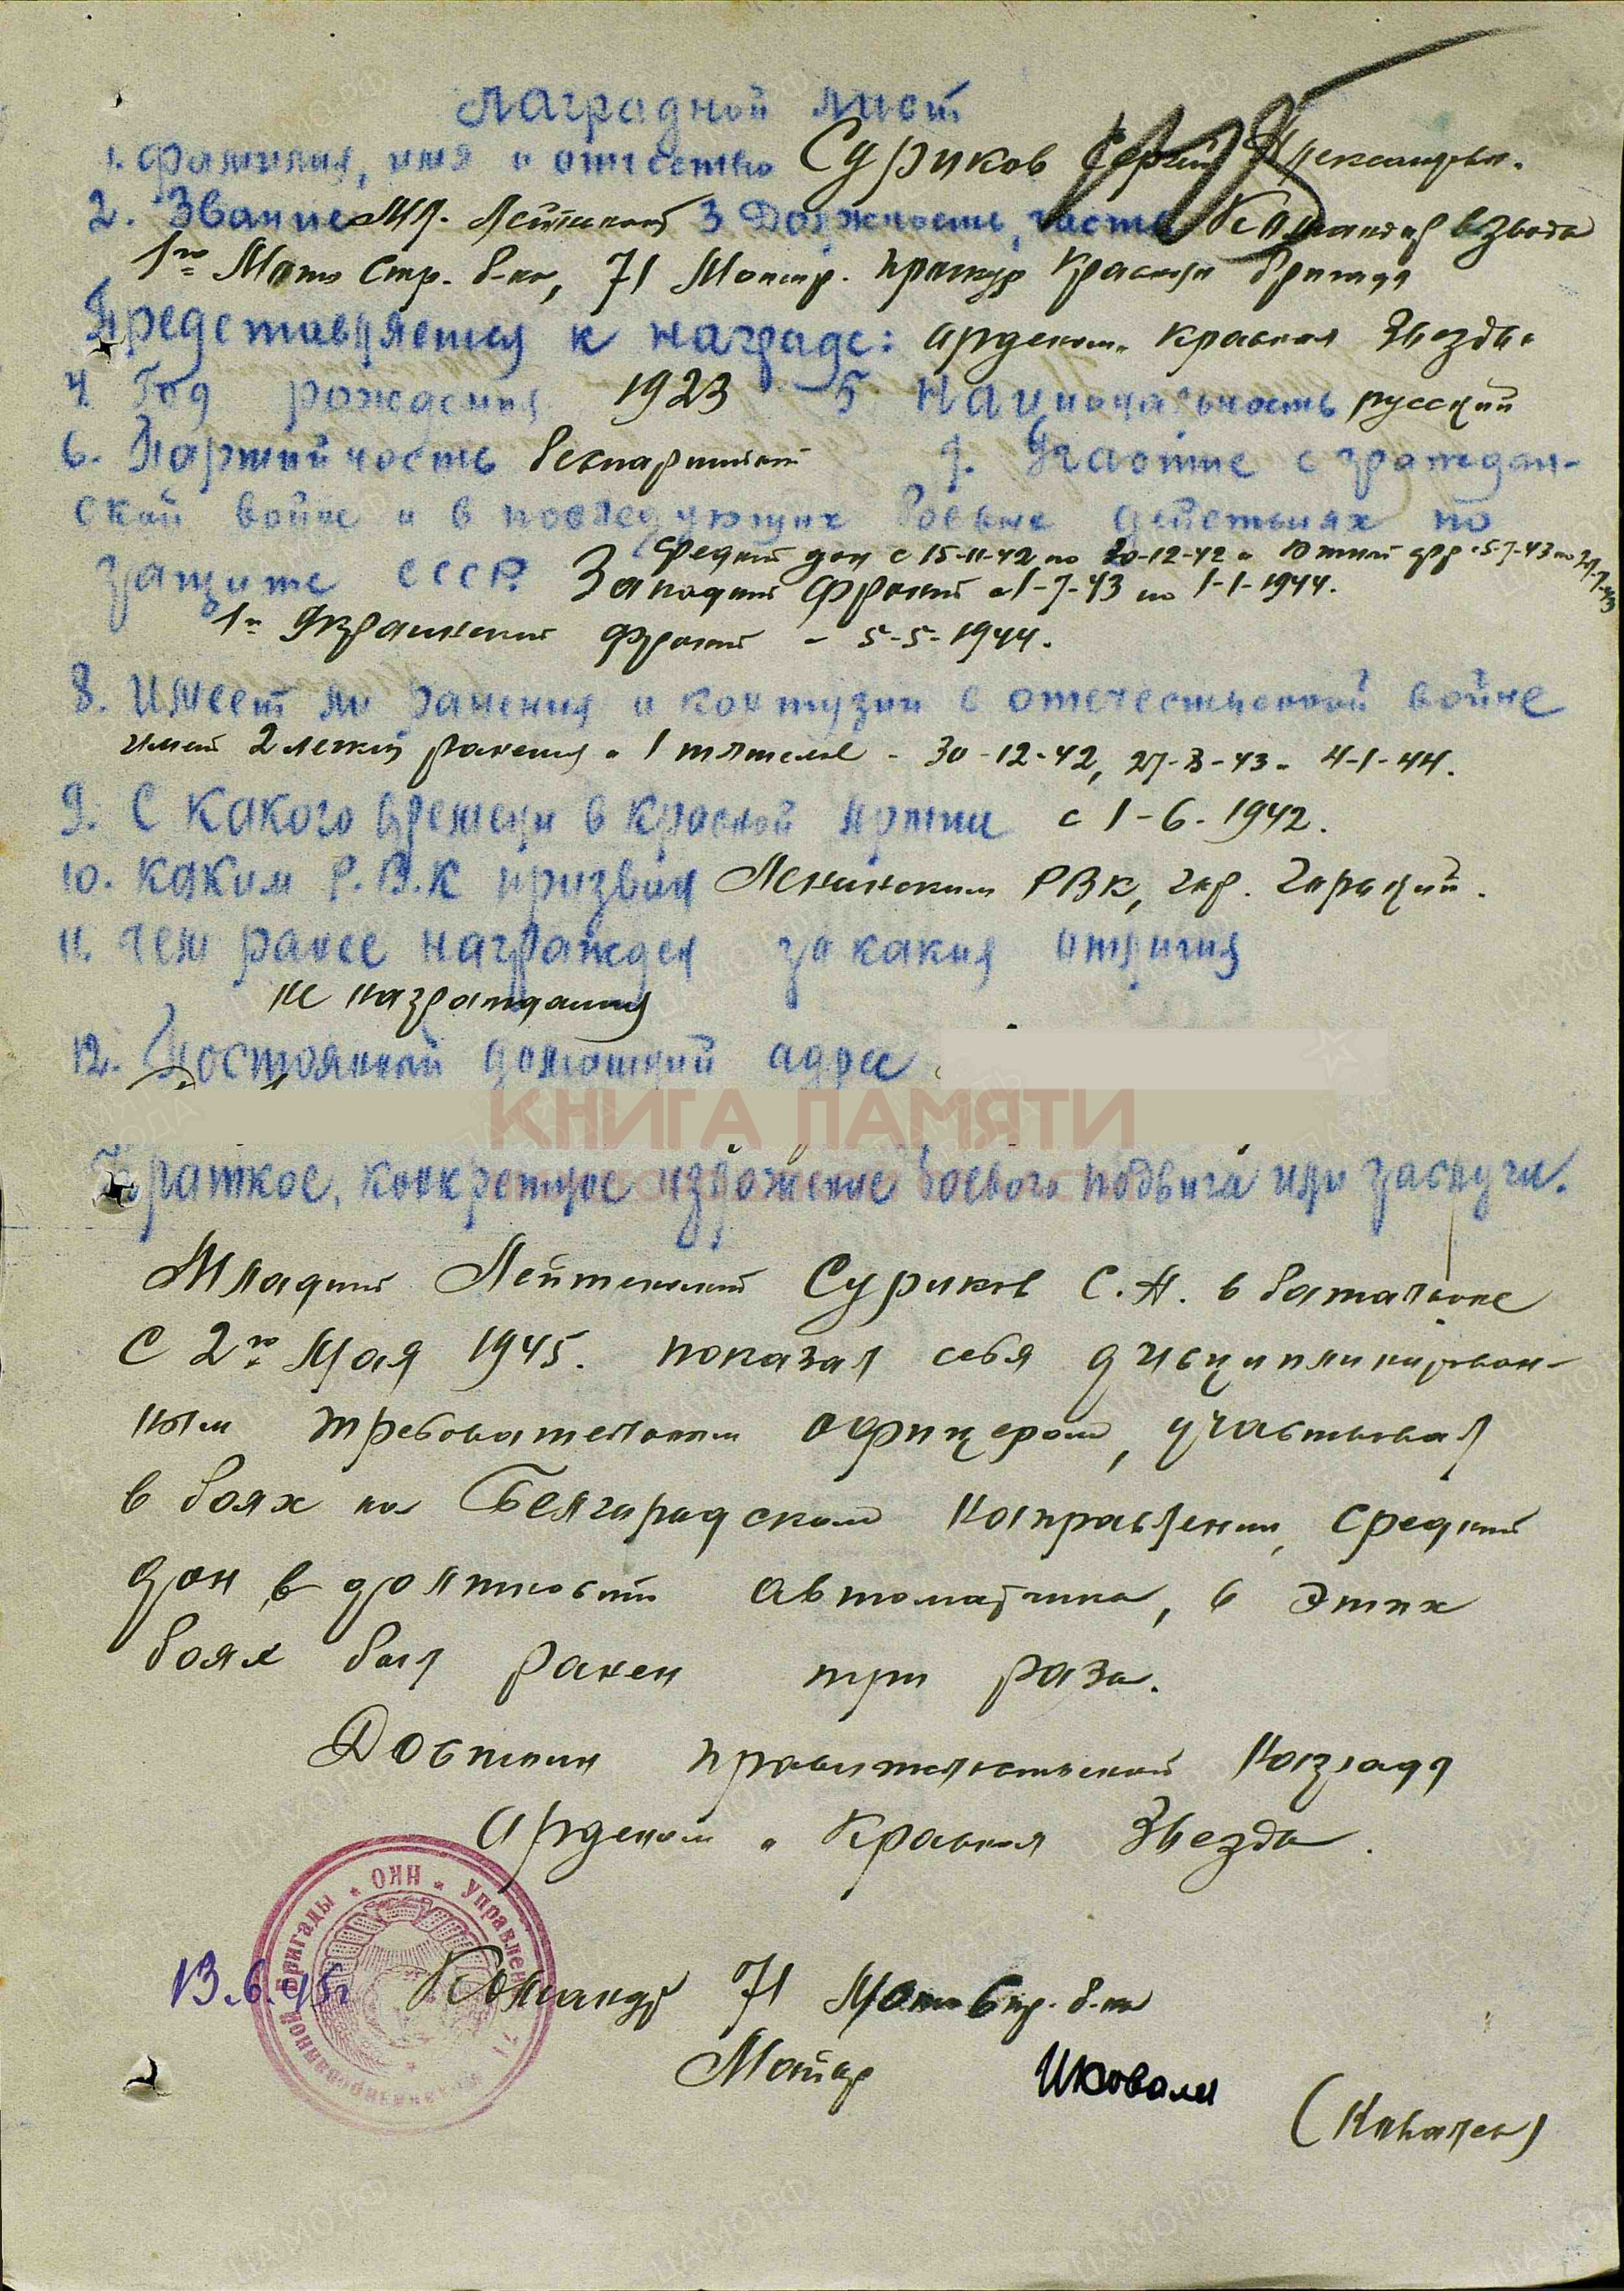 Наградной лист
1. Фамилия, имя и отчество Суриков Сергей Александров.
2. Звание Мл. Лейтенант 3 Должность, часть Командир взвода
1го Мото Стр. б-на, 71 Мотстр. бригада
Представляется к награде: орденом „ Красная Звезда "
4. Год рождения 1923 5 Национальность русский
6. Партийность беспартийный 7. Участие в граждан-
ской войне и в последующих боевых действиях по
защите СССР. Средний дон с 15-11-42 по 20-12-42 Южный фр
Западный фронт 1-7-43 по 1-1-1944.
1й Украинский фронт - 5-5-1944.
8. Имеет ли ранения и контузии в отечественной войне
имеет 2 легких ранения и 1 тяжелое - 30-12-42, 27-3-43. 4-1-44.
9. С какого времени в красной армии с 1-6-1942.
10. Каким Р.В.К призван Ленинским РВК, гор.
11. Чем ранее награжден за какия отличия
не награждался
12. Постоянный домашний адрес
КНИГА ПАМЯТИ
Краткое, конкретное изложение боевого подвига или заслуги.
Младший Лейтенант Суриков С. А. в батальоне
с 2го Мая 1945. показал себя дисциплинирован-
ным требовательным офицером, участвовал
в боях на Белгородском направлении, средний
дон, в должности автоматчика, в этих
боях был ранен три раза.
Достоин правительственной награды
Орденом „ Красная Звезда .
* НКО * Управлен
71 механизированной бригады
13.6.45г Командир 71 Мото Стр. б-на
Майор Иковали
(Коваленко)